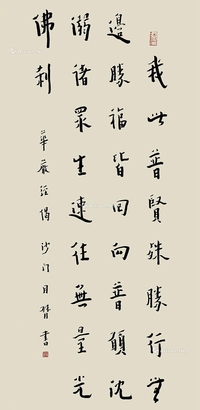 我此普賢殊勝行無
邊勝福皆回向普願沈
溺諸眾生速往無量光
佛刹
華嚴經偈 沙门月臂書